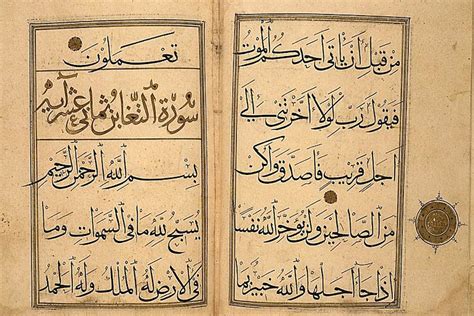 من قبل أن يأتى أحدكم الموت
فيقول رب لولا أخرتني إلى
أجل قريب فأصدق وأكن
من الصالحين ولن يؤخر الله نفسا
إذا جا أجلها والله خبير بما
تعملون
سورة التغابن ثماني عشر آية
بسم الله الرحمن الرحيم
يسبح لله ما في السموات وما
في الأرض له الملك وله الحمد